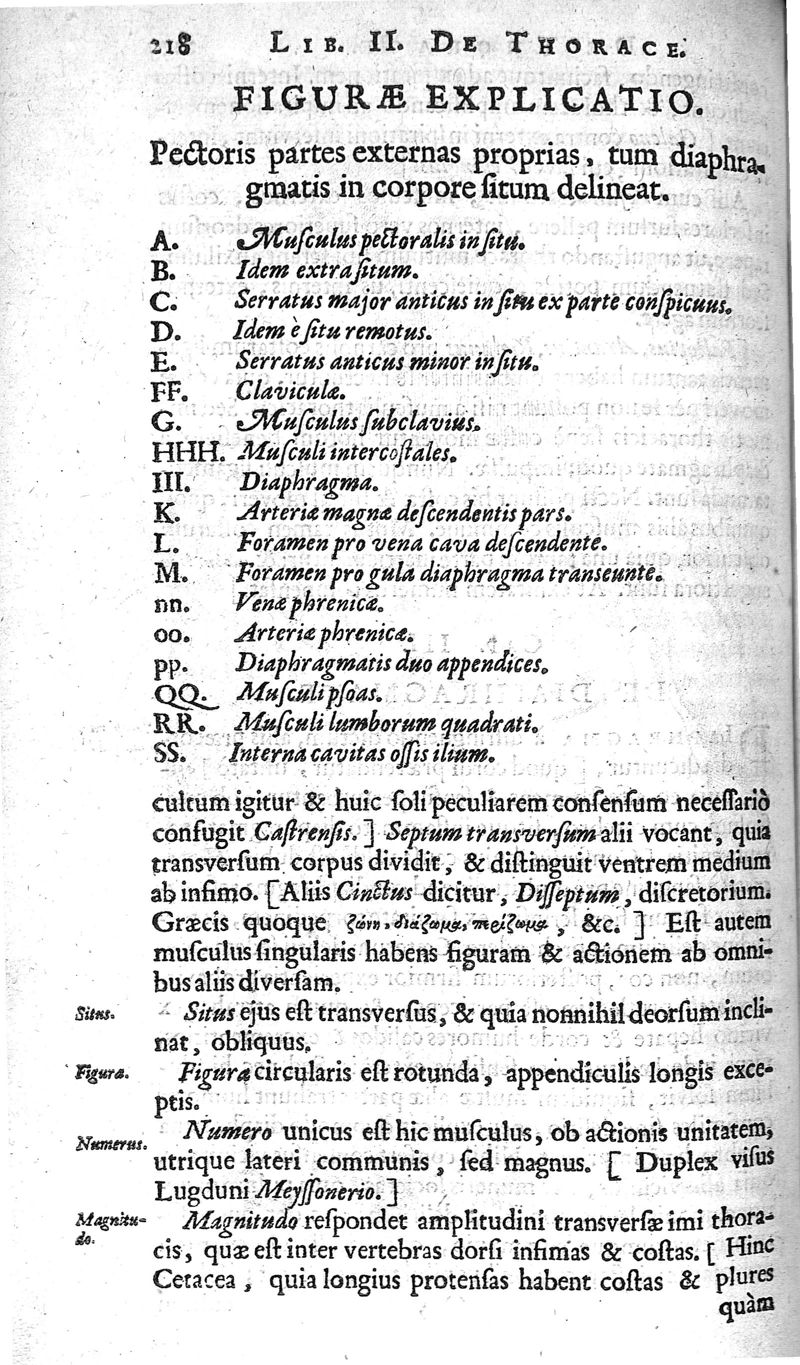 218 LIB. II. DE THORACE.
FIGURÆ EXPLICATIO.
Pectoris partes externas proprias, tum diaphra-
gmatis in corpore ſitum delineat.
A. Muſculus pectoralis in ſitu.
B. Idem extra ſitum.
C. Serratus major anticus in ſitu ex parte conſpicuus.
D. Idem è ſitu remotus.
E. Serratus anticus minor in ſitu.
FF. Claviculæ.
G. Muſculus ſubclavius.
HHH. Muſculi intercoſtales.
III. Diaphragma.
K. Arteriæ magnæ deſcendentis pars.
L. Foramen pro vena cava deſcendente.
M. Foramen pro gula diaphragma transeunte.
nn. Venæ phrenicæ.
oo. Arteriæ phrenicæ.
pp. Diaphragmatis duo appendices.
QQ. Muſculi pſoas.
RR. Muſculi lumborum quadrati.
SS. Interna cavitas oſſis ilium.
cultum igitur & huic ſoli peculiarem conſenſum neceſſariò
confugit Caſtrenſis. ] Septum transverſum alii vocant, quia
transverſum corpus dividit, & diſtinguit ventrem medium
ab infimo. [ Aliis Cinctus dicitur, Diſſeptum, diſcretorium.
Græcis quoque ζώνη, διάζωμα, περίζωμα, &c. ] Eſt autem
muſculus ſingularis habens figuram & actionem ab omni-
bus aliis diverſam.
Situs. Situs ejus eſt transverſus, & quia nonnihil deorſum incli-
nat, obliquus.
Figura. Figura circularis eſt rotunda, appendiculis longis exce-
ptis.
Numerus. Numero unicus eſt hic muſculus, ob actionis unitatem,
utrique lateri communis, ſed magnus. [ Duplex viſus
Lugduni Meyſſonerio. ]
Magnitu- Magnitudo reſpondet amplitudini transverſæ imi thora-
do. cis, quæ eſt inter vertebras dorſi infimas & coſtas. [ Hinc
Cetacea, quia longius protenſas habent coſtas & plures
quàm